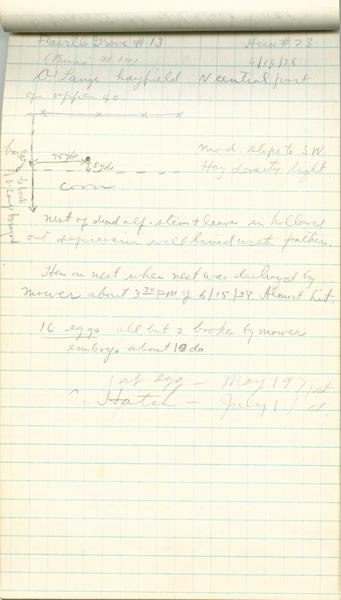 Prairie Grove #13 Hen #23
(Burns # 14) 6/15/38
O'Lange hayfield N central part
on upper 40
x x x x
Mod. slope to SW.
Hay density light
75 yds 5 yds
corn
Nest of dead alf. stems & leaves in hollowed
out depression well lined with feathers.
Hen on nest when nest was destroyed by
mower about 3:30 PM of 6/15/38 Almost hit.
16 eggs all but 2 broken by mower
embryo about 10 da
1st egg - May 19
C. Hatch - July 1